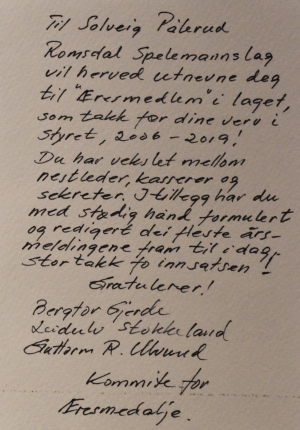 Til Solveig Pålerud
Romsdal Spelemannslag
vil herved utnevne deg
til "Æresmedlem" i laget,
som takk for dine verv i
Styret, 2006-2019!
Du har vekslet mellom
nestleder, kasserer og
sekretær. I tillegg har du
med stødig hånd formulert
og redigert dei fleste års-
meldingene fram til i dag.
Stor takk fo innsatsen!
Gratulerer!
Bergtor Gjerde
Leidulv Stokkeland
Guttorm R. Ulvund
Kommite for
Æresmedalje.